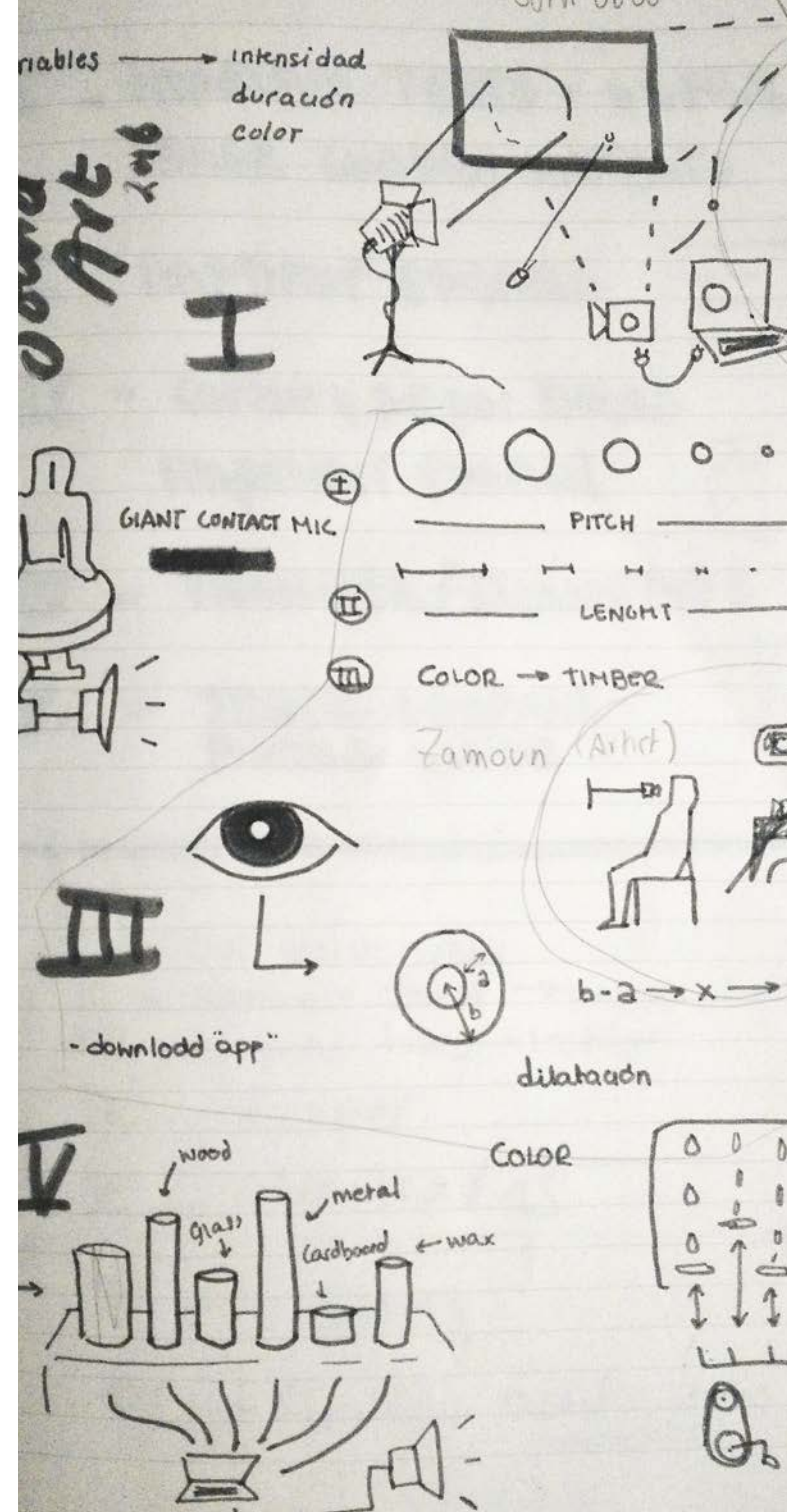 riables → intensidad
duración
color
Sound
Art
I
GIANT CONTACT MIC
I
PITCH
II
LENGHT
III
COLOR → TIMBER
Zamoun (Artist)
III
a
b
b-a → x →
- downlodd "app"
dilatación
IV
COLOR
wood
glass
metal
cardboard
wax